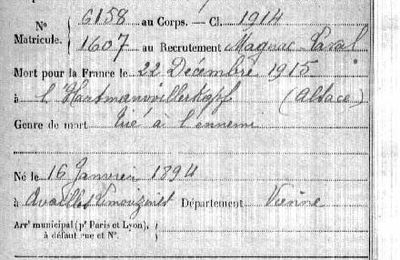 N° 6158 au Corps. — Cl. 1914
Matricule. 1607 au Recrutement Magnac-Laval
Mort pour la France le 22 Décembre 1915
à l'Hartmannvillerkopf (Alsace)
Genre de mort Tué à l'ennemi
Né le 16 Janvier 1894
à Availles Limouzine Département Vienne
Arr¹ municipal (p² Paris et Lyon),
à défaut rue et N°.